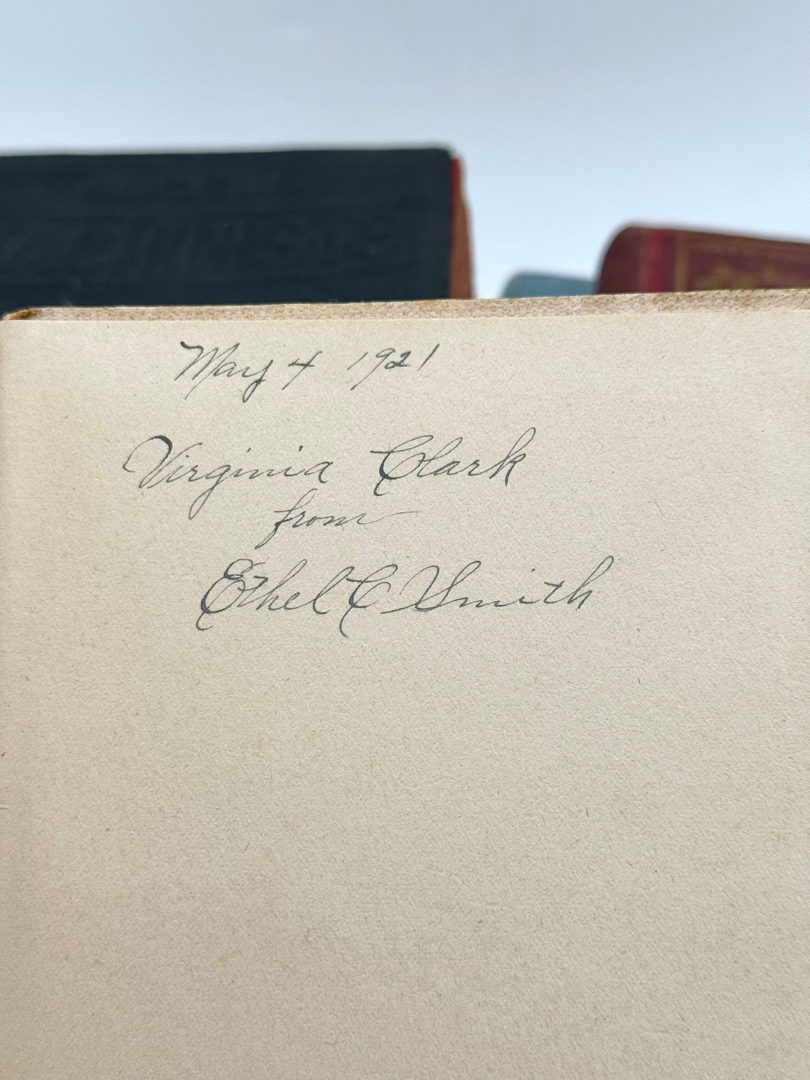 May 4 1921
Virginia Clark
from
Ethel C Smith